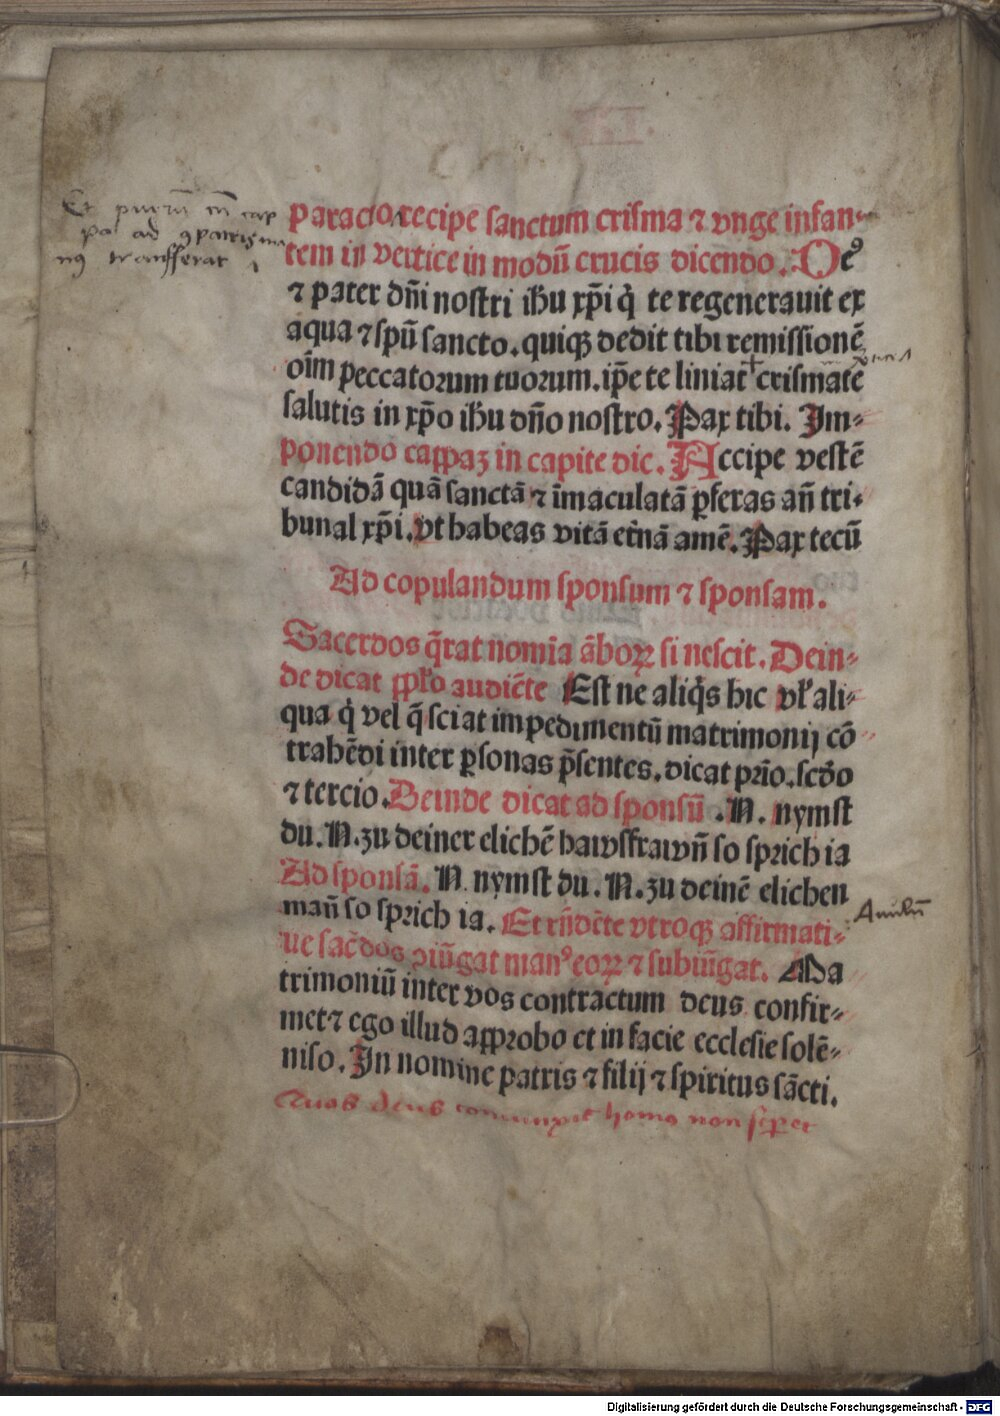 Et pueru̅ cu̅ cap
pa ad ꝯpatris ma
nꝰ transferat
paracto recipe sanctum crisma ⁊ vnge infan⸗
tem in vertice in modu̅ crucis dicendo. Deꝰ
⁊ pater dn̅i nostri ihu xp̅i q̇ te regenerauit ex
aqua ⁊ spu̅ sancto. quiqꝫ dedit tibi remissione̅
oi̅m peccatorum tuorum. ip̅e te liniat + crismate
salutis in xp̅o ihu dn̅o nostro. Pax tibi. Im⸗
ponendo cappaꝫ in capite dic. Accipe veste̅
candida̅ qua̅ sancta̅ ⁊ i̅maculata̅ ꝑferas an̅ tri⸗
bunal xp̅i. vt habeas vita̅ et̅na̅ ame̅. Pax tecu̅
Ad copulandum sponsum ⁊ sponsam.
Sacerdos q̅rat nomi̅a a̅boꝝ si nescit. Dein⸗
de dicat pplo audie̅te Est ne aliq̇s hic vl' ali⸗
qua q̇ vel q̅ sciat impedimentu̅ matrimonij co̅
trahe̅di inter ꝑsonas p̅sentes. dicat pri̅o. scd̅o
⁊ tercio. Deinde dicat ad sponsu̅ .N. nymst
du. N. zu deiner eliche̅ hawsfrawn̅ so sprich ia
Ad sponsa̅. N. nymst du. N. zu deine̅ elichen
man̅ so sprich ia. Et rn̅de̅te vtroqꝫ affirmati⸗
Anulu̅
ue sac̅dos ꝯiu̅gat manꝰ eoꝝ ⁊ subiu̅gat. Ma
trimoniu̅ inter vos contractum deus confir⸗
met ⁊ ego illud approbo et in facie ecclesie sole̅⸗
niso. In nomine patris ⁊ filij ⁊ spiritus sa̅cti.
Quos deus coniunxit homo non seꝑet
Digitalisierung gefördert durch die Deutsche Forschungsgemeinschaft - DFG